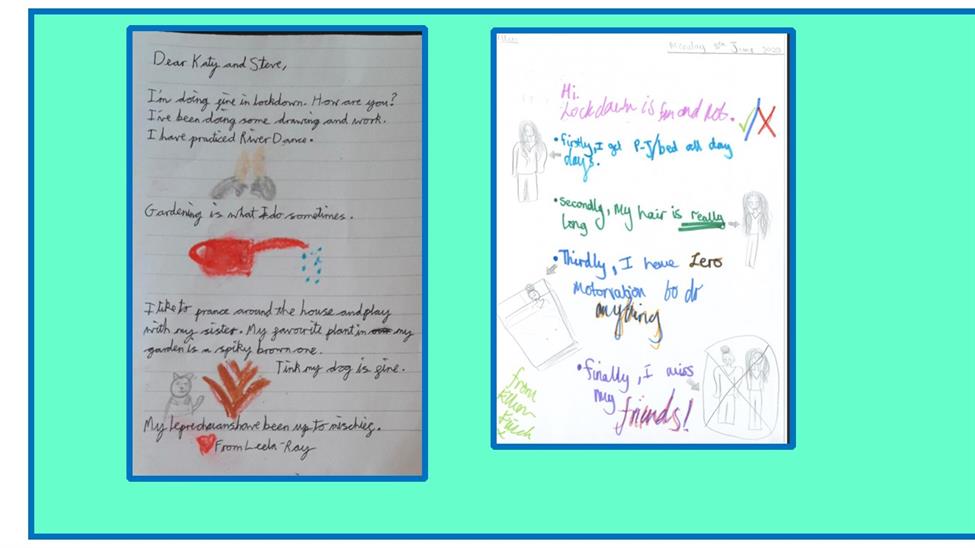 Dear Katy and Steve,
I'm doing fine in lockdown. How are you?
I've been doing some drawing and work.
I have practiced River Dance.
Gardening is what I do sometimes.
I like to prance around the house and play
with my sister. My favourite plant in my
garden is a spiky brown one.
Tink my dog is fine.
My leprechauns have been up to mischief.
From Leela-Ray
Monday 8th June 2020
Hi.
Lockdown is fun and not.
• Firstly, I get P-J/bed all day
days.
• Secondly, My hair is really
long
• Thirdly, I have Zero
Motorvation to do
anything
• Finally, I miss
my friends!
from